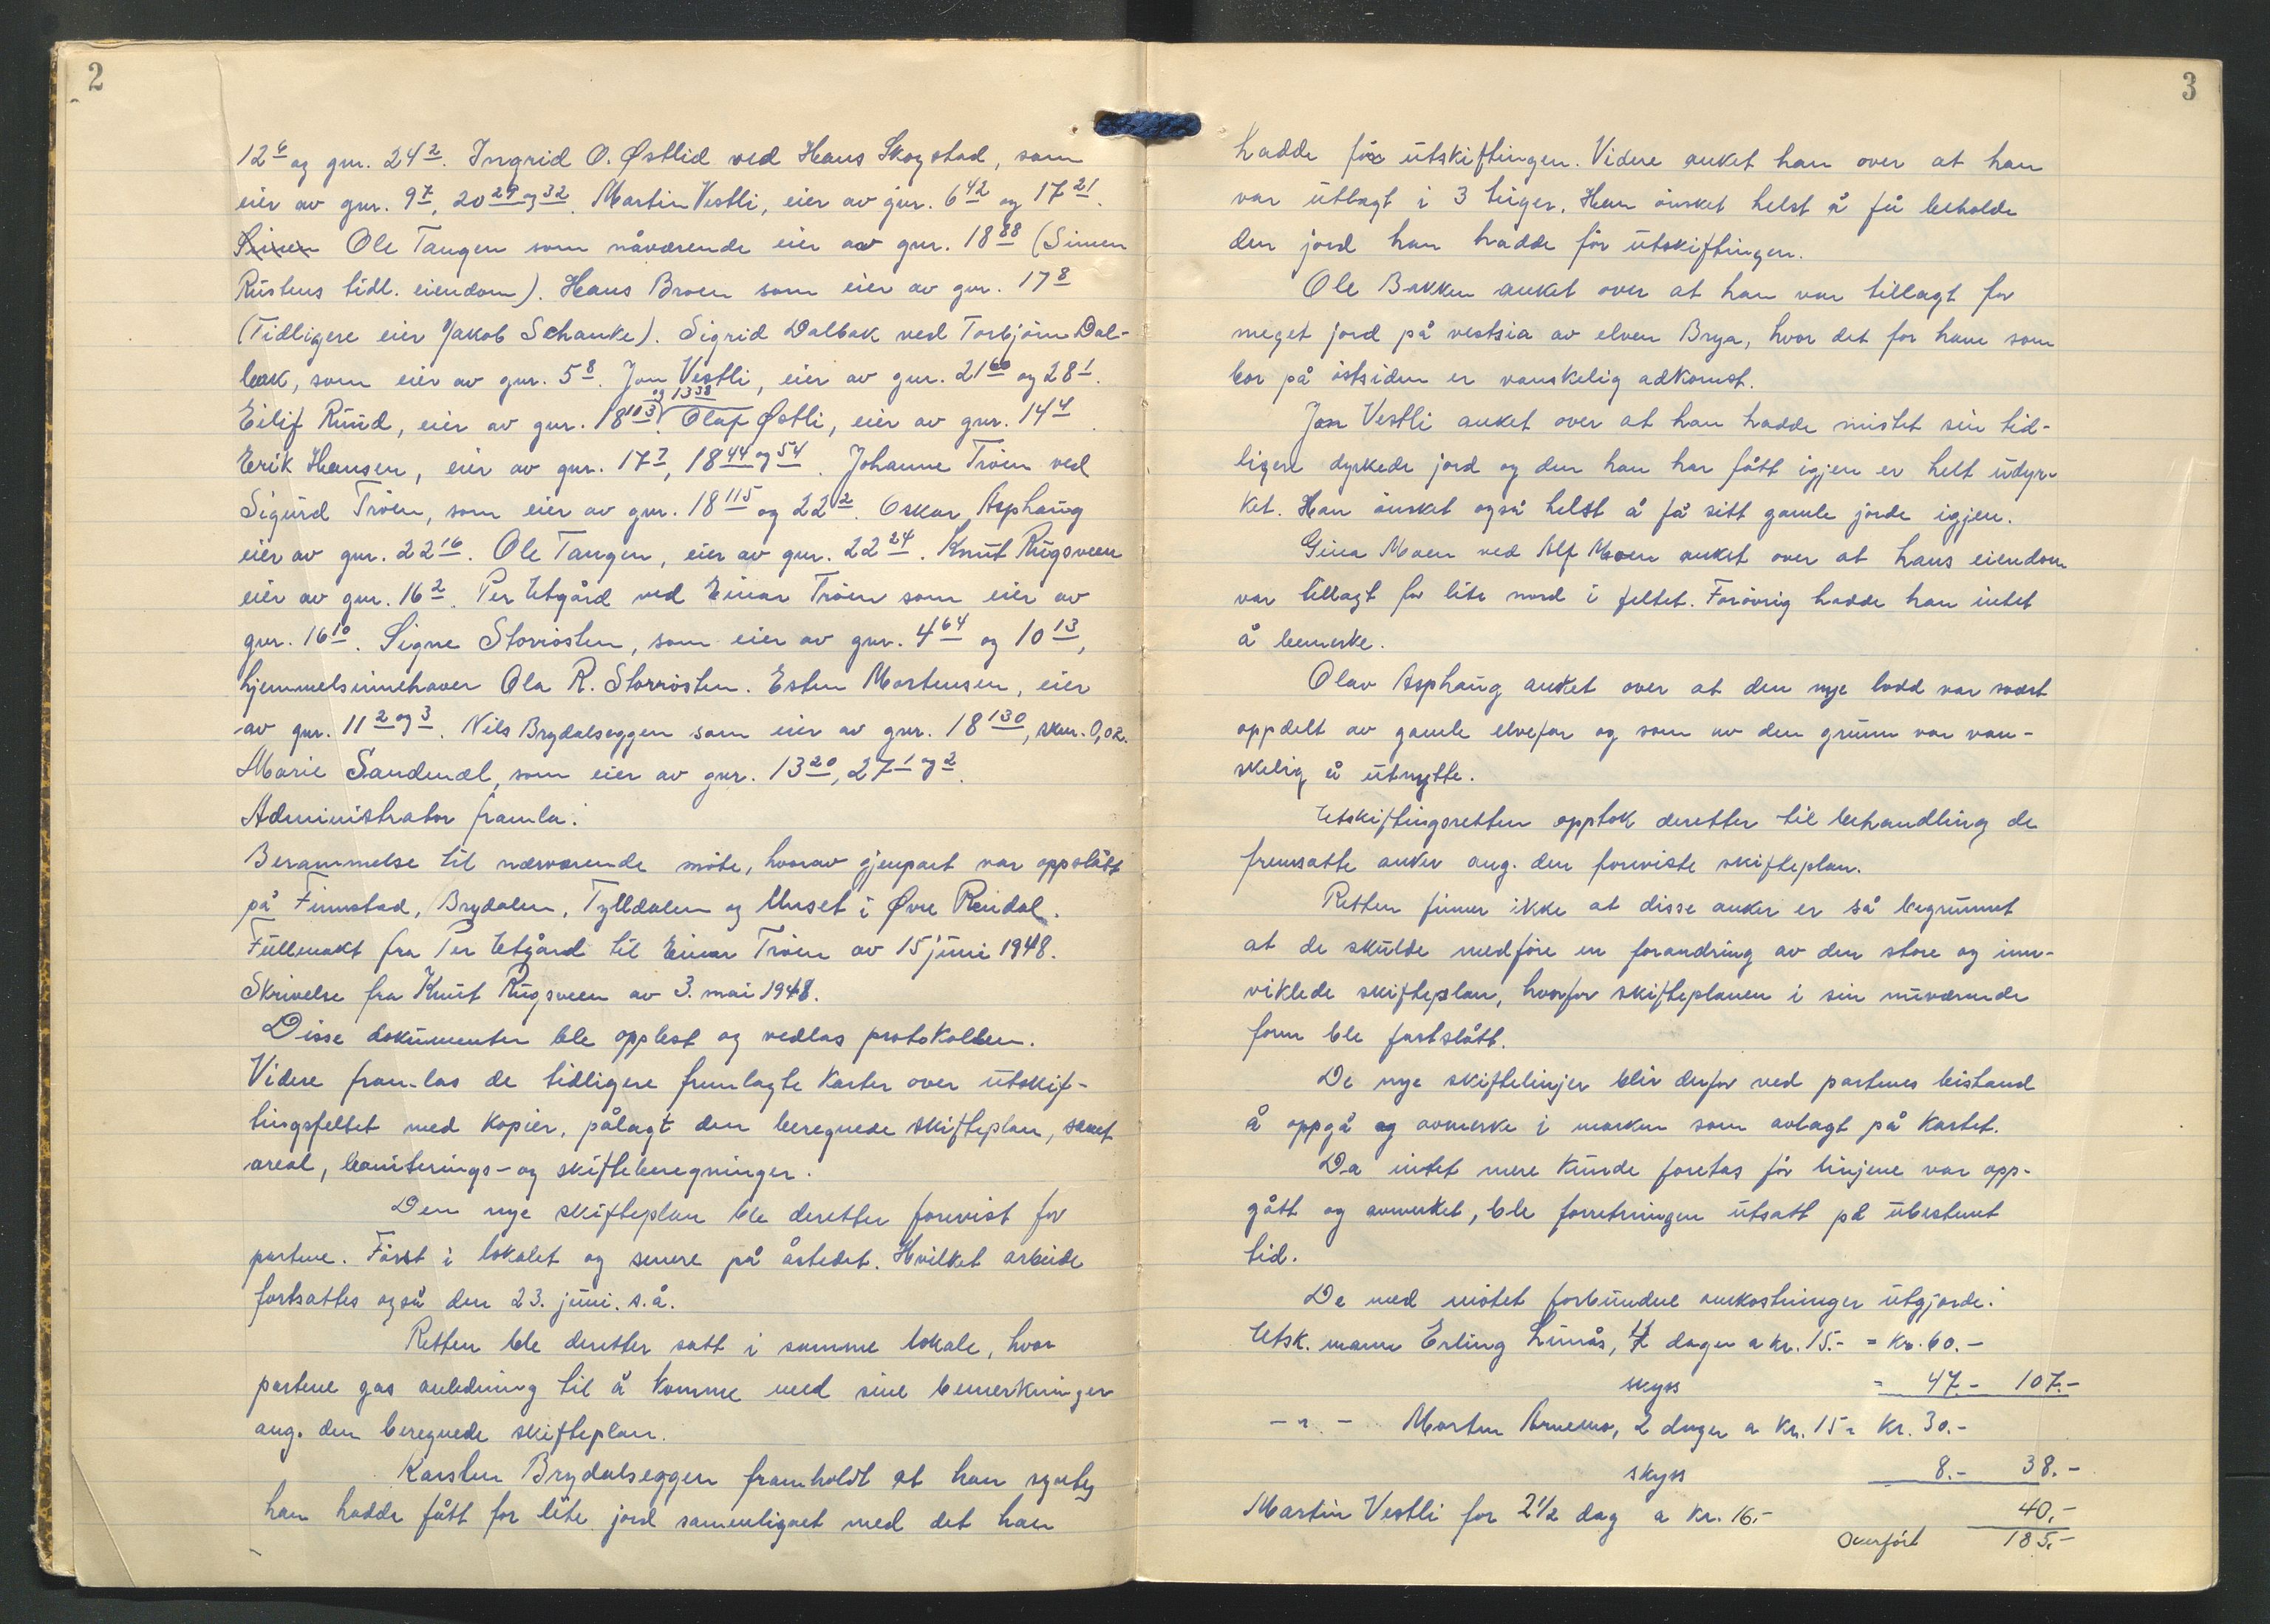 2
12⁶ og gnr. 24². Ingrid O. Østlid ved Hans Skogstad, som
eier av gnr. 9⁷, 20²⁹ og ³². Martin Vestli, eier av gnr. 6⁴² og 17²¹.
Simen Ole Tangen som nåværende eier av gnr. 18⁸⁸ (Simen
Rustens tidl. eiendom). Hans Broen som eier av gnr. 17⁸
(Tidligere eier Jakob Schanke). Sigrid Dalbak ved Torbjörn Dal-
bak, som eier av gnr. 5⁸. Jon Vestli, eier av gnr. 21⁶⁰ og 28¹.
og 13³⁸
Eilif Ruud, eier av gnr. 18¹⁰³. Olaf Østli, eier av gnr. 14⁴.
Erik Hansen, eier av gnr. 17⁷, 18⁴⁴ og ⁵⁴. Johanne Tröen ved
Sigurd Tröen, som eier av gnr. 18¹¹⁵ og 22². Oskar Asphaug
eier av gnr. 22¹⁶. Ole Tangen, eier av gnr. 22²⁴. Knut Rugsveen
eier av gnr. 16². Per Utgård ved Einar Tröen som eier av
gnr. 16¹⁰. Signe Storrösten, som eier av gnr. 4⁶⁴ og 10¹³,
hjemmelsinnehaver Ola R. Storrösten. Esten Mortensen, eier
av gnr. 11² og ³. Nils Brydalseggen som eier av gnr. 18¹³⁰, skur. 0,02.
Marie Sandnæl, som eier av gnr. 13²⁰, 27¹ og ².
Administrator framla:
Berammelse til nærværende möte, hvorav gjenpart var oppslått
på Finnstad, Brydalen, Tylldalen og Unset i Øvre Rendal.
Fullmakt fra Per Utgård til Einar Tröen av 15 juni 1948.
Skrivelse fra Knut Rugsveen av 3. mai 1948.
Disse dokumenter ble opplest og vedlas protokollen.
Videre fram-las de tidligere fremlagte karter over utskif-
tingsfeltet med kopier, pålagt den beregnede skifteplan, samt
areal, boniterings- og skifteberegninger.
Den nye skifteplan ble deretter forevist for
partene. Först i lokalet og senere på åstedet. Hvilket arbeide
fortsattes også den 23. juni. s.å.
Retten ble deretter satt i samme lokale, hvor
partene gas anledning til å komme med sine bemerkninger
ang. den beregnede skifteplan.
Karsten Brydalseggen framholdt at han syntes
han hadde fått for lite jord samenlignet med det han
3
hadde för utskiftingen. Videre anket han over at han
var utlagt i 3 teiger. Han önsket helst å få beholde
den jord han hadde för utskiftingen.
Ole Bakken anket over at han var tillagt for
meget jord på vestsia av elven Brya, hvor det for ham som
bor på östsiden er vanskelig adkomst.
Jon Vestli anket over at han hadde mistet sin tid-
ligere dyrkede jord og den han har fått igjen er helt udyr-
ket. Han önsket også helst å få sitt gamle jorde igjen.
Gina Moen ved Alf Moen anket over at hans eiendom
var tillagt for lite nord i feltet. Forövrig hadde han intet
å bemerke.
Olav Asphaug anket over at den nye lodd var svært
oppdelt av gamle elvefar og som av den grunn var van-
skelig å utnytte.
Utskiftingsretten opptok deretter til behandling de
fremsatte anker ang. den foreviste skifteplan.
Retten finner ikke at disse anker er så begrunnet
at de skulde medföre en forandring av den store og inn-
viklede skifteplan, hvorfor skifteplanen i sin nuværende
form ble fastslått.
De nye skiftelinjer blir derfor ved partenes bistand
å oppgå og avmerke i marken som avlagt på kartet.
Da intet mere kunde foretas för linjene var opp-
gått og avmerket, ble forretningen utsatt på ubestemt
tid.
De med mötet forbundne omkostninger utgjorde:
Utsk. mann Erling Limås, 4 dager a kr. 15.- = kr. 60.-
skyss = 47.- 107.-
- " - Morten Arnemo, 2 dager a kr. 15 = kr. 30.-
skyss 8.- 38.-
Martin Vestli for 2½ dag a kr. 16.- 40.-
Overfört 185.-